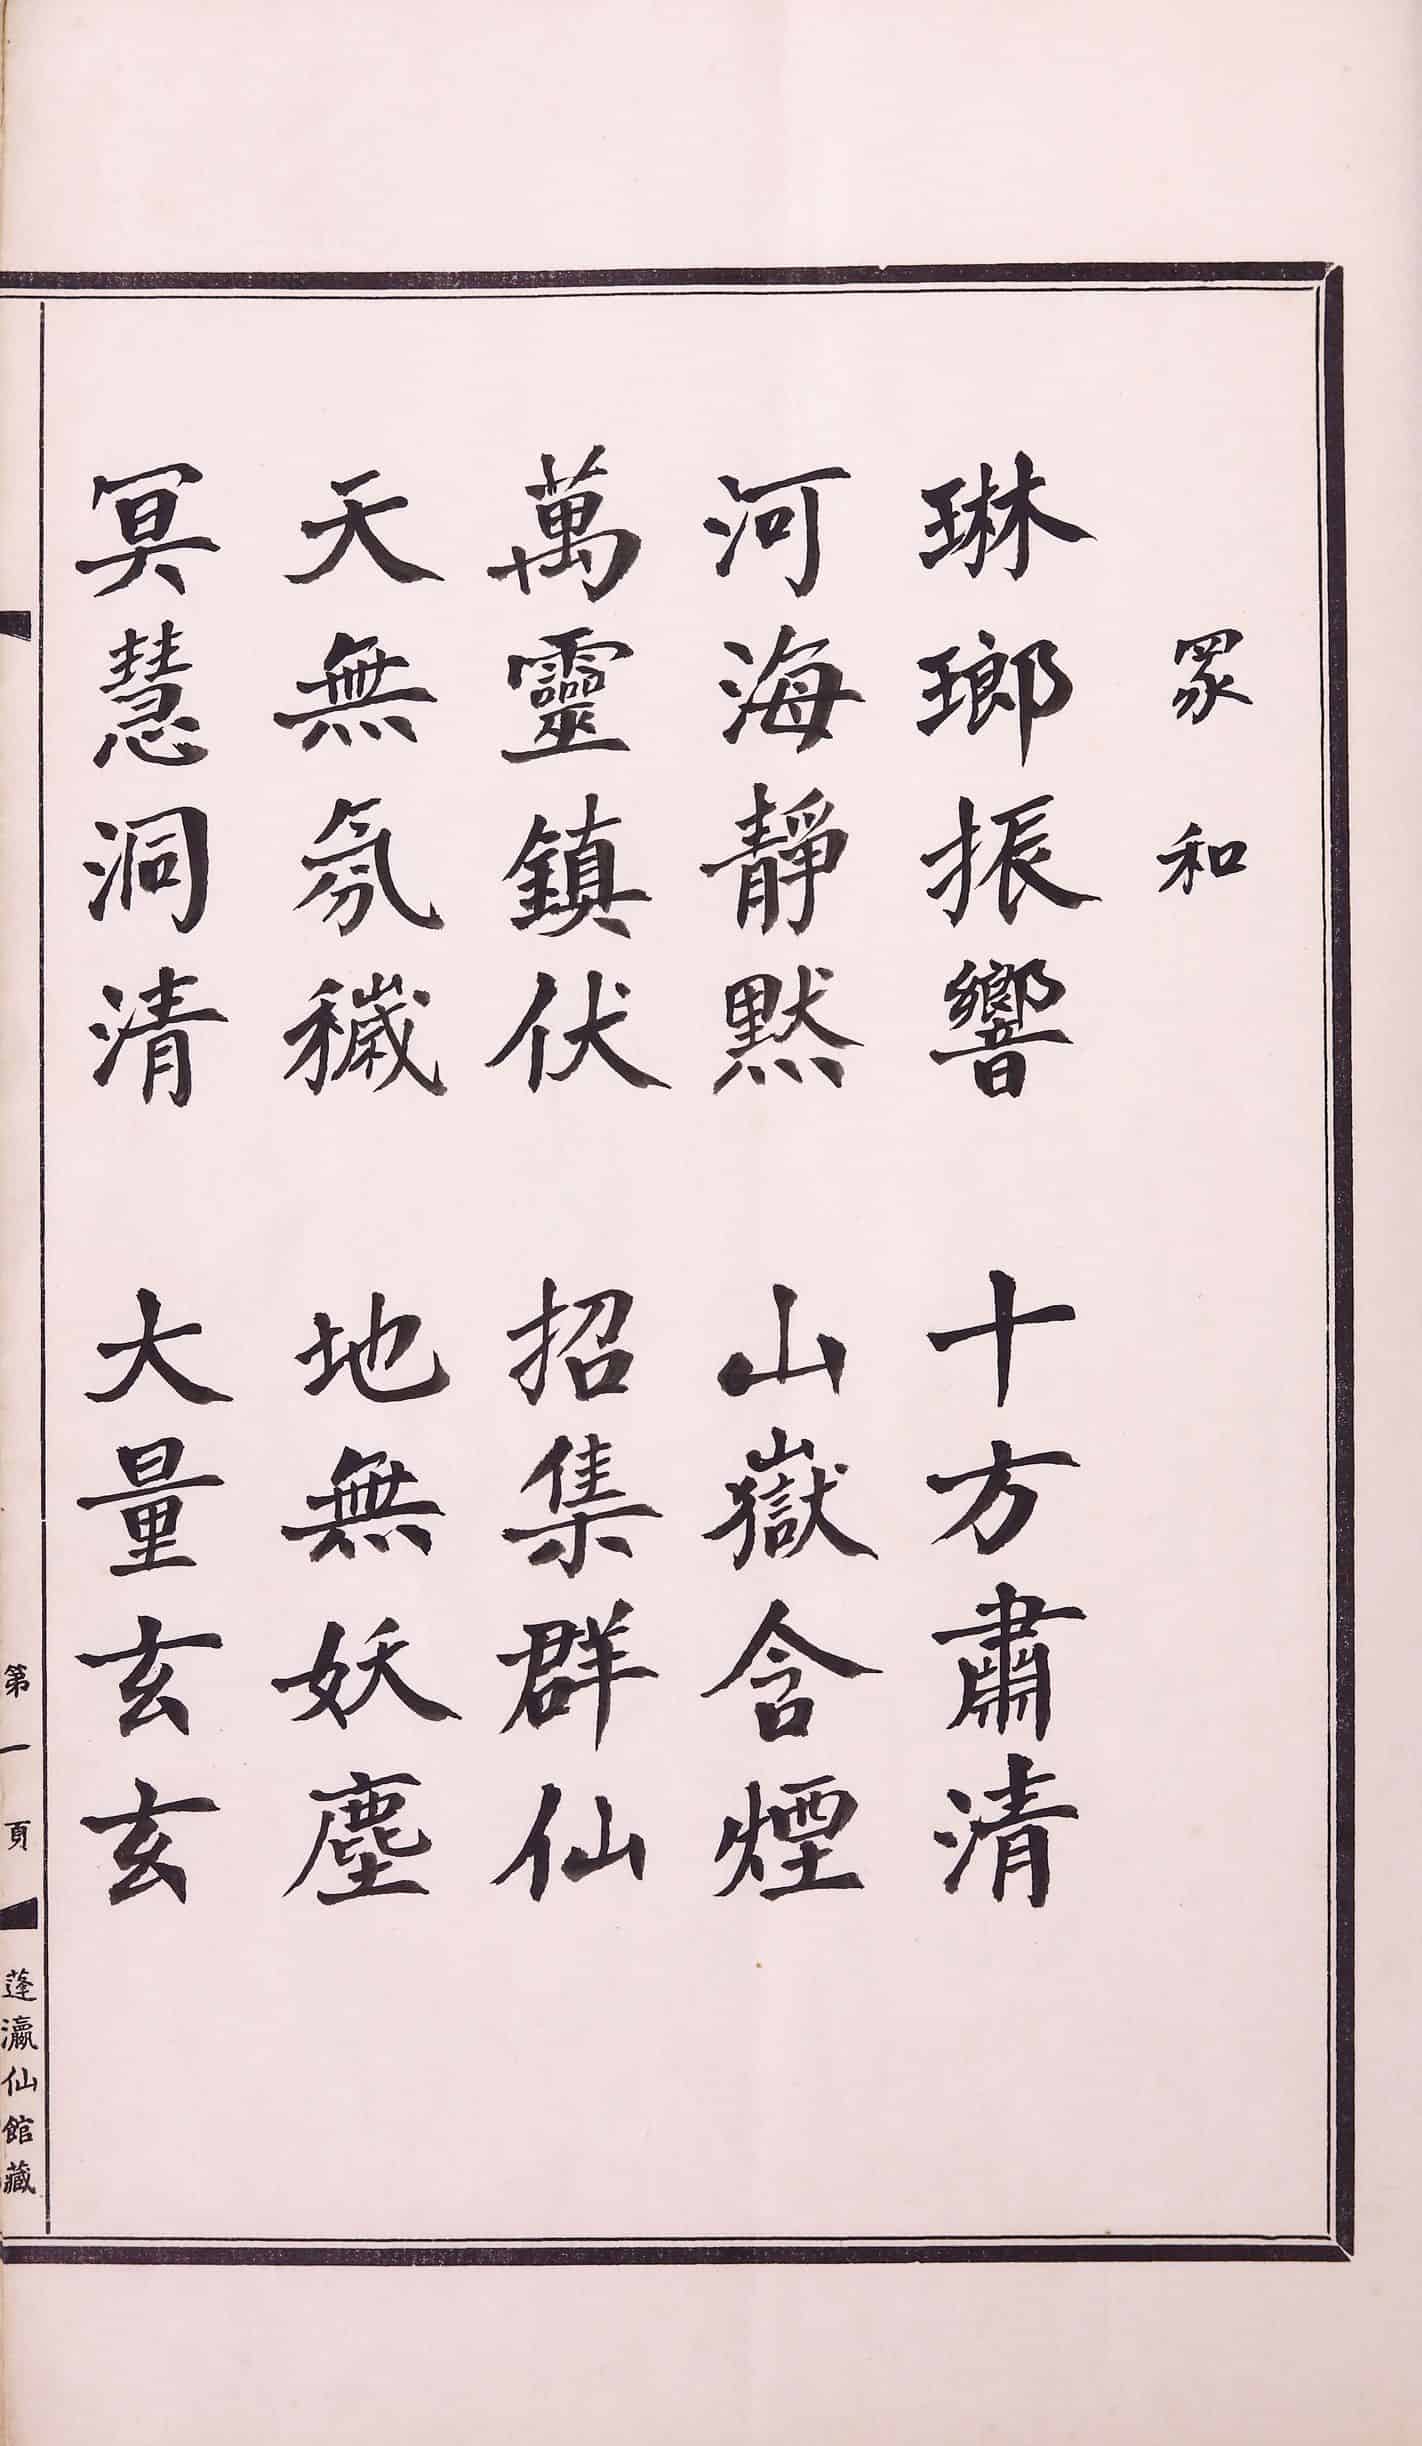 眾和
琳瑯振響 十方肅清
河海靜黙 山嶽含煙
萬靈鎮伏 招集群仙
天無氛穢 地無妖塵
冥慧洞清 大量玄玄
第一頁 蓬瀛仙館藏